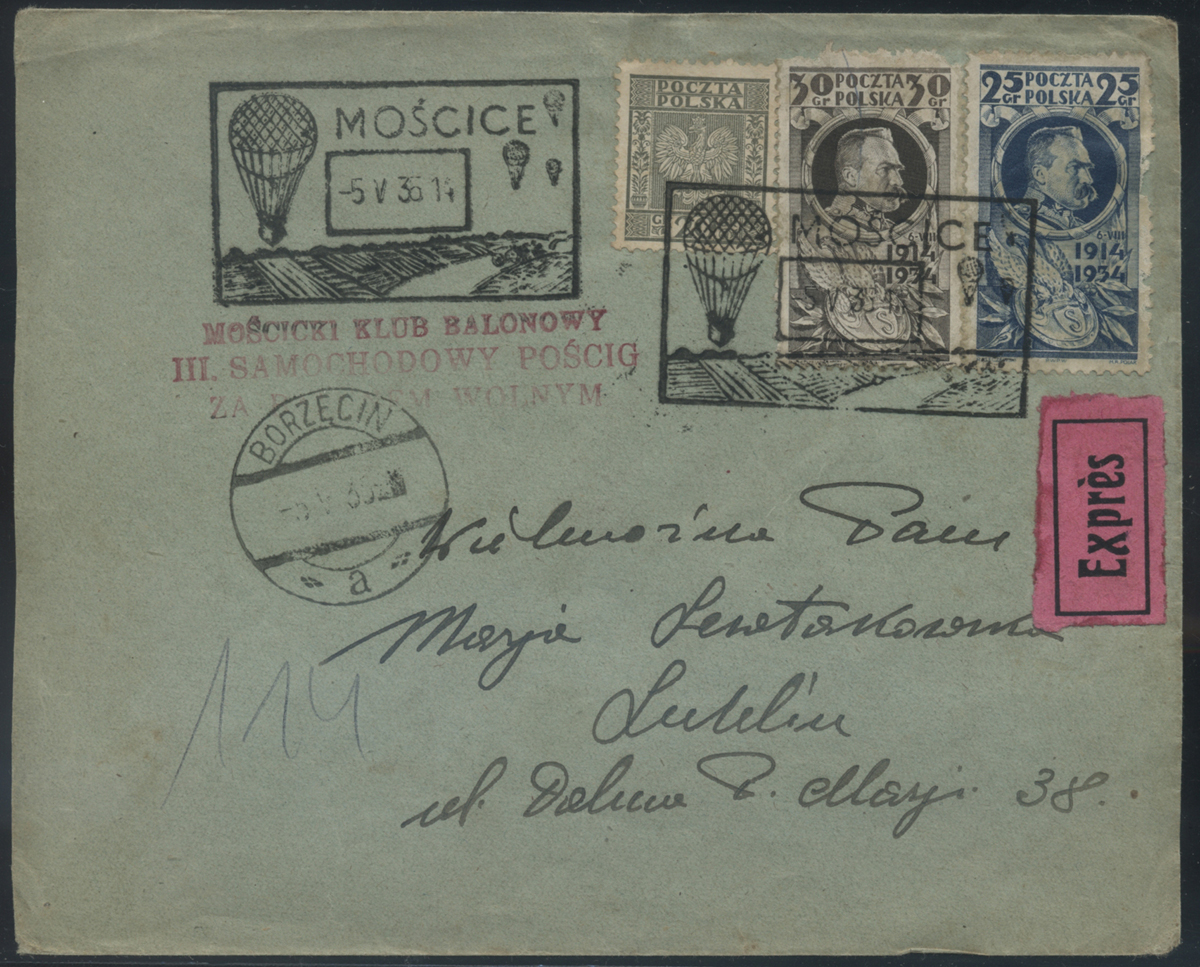 MOŚCICE
-5 V 35 14
POCZTA
POLSKA
GR
30 POCZTA 30
Gr POLSKA Gr
6·VIII
1914
1934
25 POCZTA 25
Gr POLSKA Gr
6·VIII
1914
1934
MOŚCICE
V 35
MOŚCICKI KLUB BALONOWY
III. SAMOCHODOWY POŚCIG
ZA WOLNYM
BORZĘCIN
a
Exprès
Wielmożna Pani
Marja Lewtakowska
Lublin
ul. Dolna P. Marji 38.
114